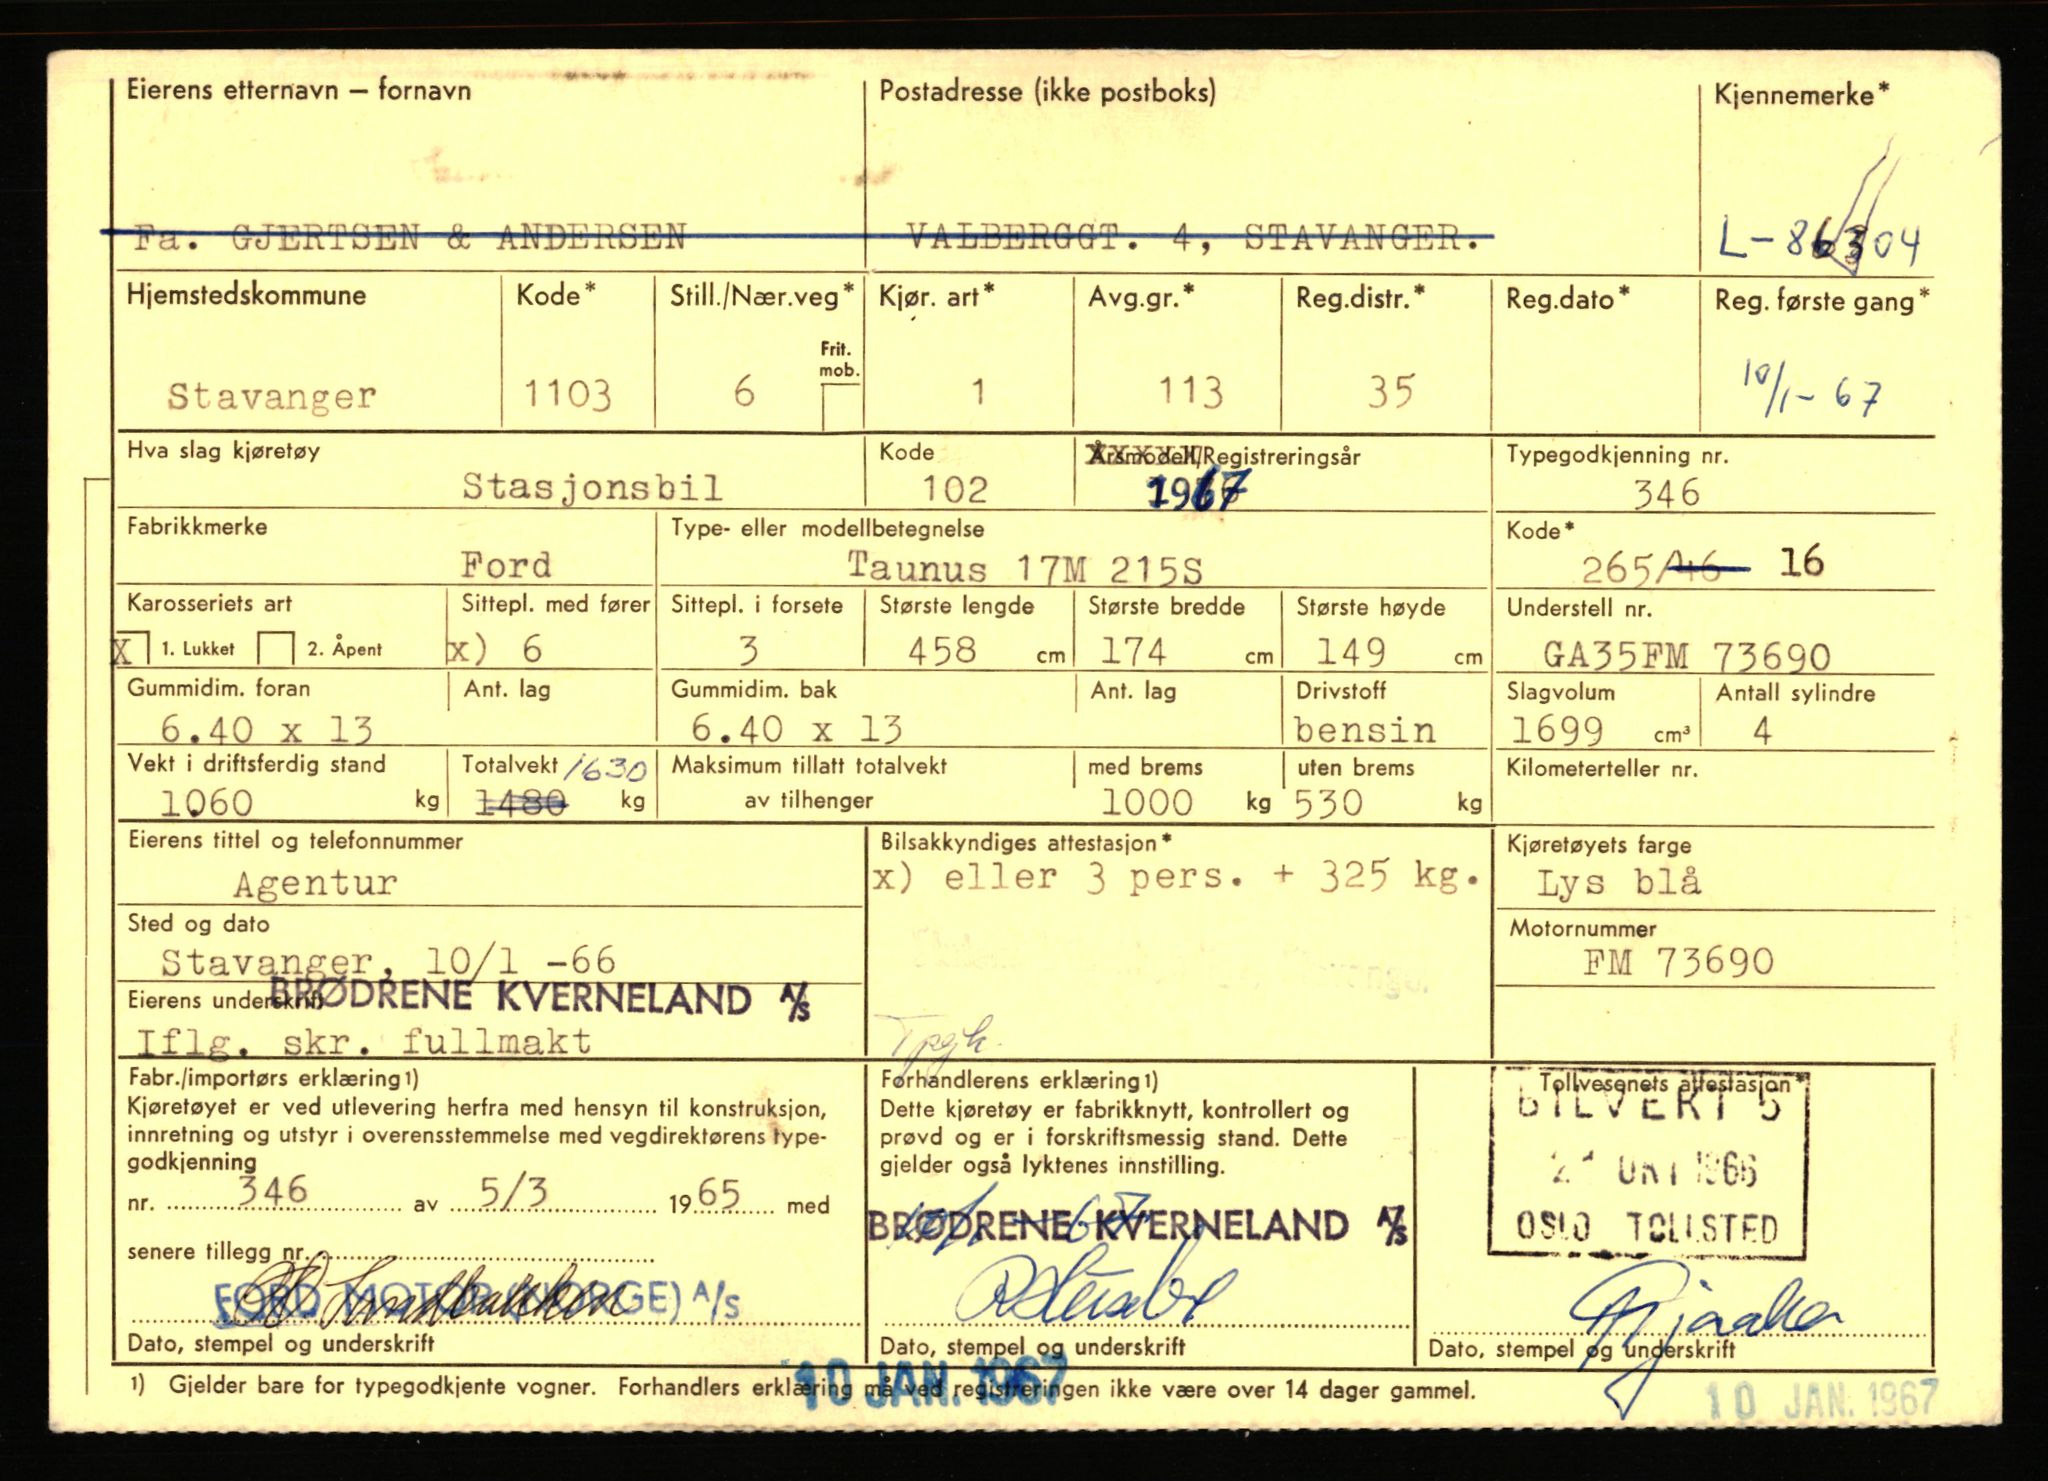 Eierens etternavn – fornavn Postadresse (ikke postboks) Kjennemerke*
Fa. GJERTSEN & ANDERSEN VALBERGGT. 4, STAVANGER. L-86304
Hjemstedskommune Kode* Still./Nær.veg* Kjør. art* Avg.gr.* Reg.distr.* Reg.dato* Reg. første gang*
Frit. mob.
Stavanger 1103 6 1 113 35 10/1-67
Hva slag kjøretøy Kode Årsmodell/Registreringsår Typegodkjenning nr.
Stasjonsbil 102 1967 346
Fabrikkmerke Type- eller modellbetegnelse Kode*
Ford Taunus 17M 215S 265/46 16
Karosseriets art Sittepl. med fører Sittepl. i forsete Største lengde Største bredde Største høyde Understell nr.
X 1. Lukket 2. Åpent x) 6 3 458 cm 174 cm 149 cm GA35FM 73690
Gummidim. foran Ant. lag Gummidim. bak Ant. lag Drivstoff Slagvolum Antall sylindre
6.40 x 13 6.40 x 13 bensin 1699 cm³ 4
Vekt i driftsferdig stand Totalvekt 1630 Maksimum tillatt totalvekt med brems uten brems Kilometerteller nr.
1060 kg 1480 kg av tilhenger 1000 kg 530 kg
Eierens tittel og telefonnummer Bilsakkyndiges attestasjon* Kjøretøyets farge
Agentur x) eller 3 pers. + 325 kg. Lys blå
Sted og dato Motornummer
Stavanger, 10/1 -66 FM 73690
Eierens underskrift BRØDRENE KVERNELAND A/S
Iflg. skr. fullmakt Tpgk.
Fabr./importørs erklæring1) Forhandlerens erklæring1) Tollvesenets attestasjon*
Kjøretøyet er ved utlevering herfra med hensyn til konstruksjon,
innretning og utstyr i overensstemmelse med vegdirektørens type-
godkjenning
nr. 346 av 5/3 1965 med
senere tillegg nr.
FORD MOTOR (NORGE) A/S
Dato, stempel og underskrift
Dette kjøretøy er fabrikknytt, kontrollert og
prøvd og er i forskriftsmessig stand. Dette
gjelder også lyktenes innstilling.
BRØDRENE KVERNELAND A/S
Dato, stempel og underskrift
BILVERT 5
21 OKT 1966
OSLO TOLLSTED
Dato, stempel og underskrift
10 JAN. 1967
1) Gjelder bare for typegodkjente vogner. Forhandlers erklæring må ved registreringen ikke være over 14 dager gammel.
10 JAN. 1967